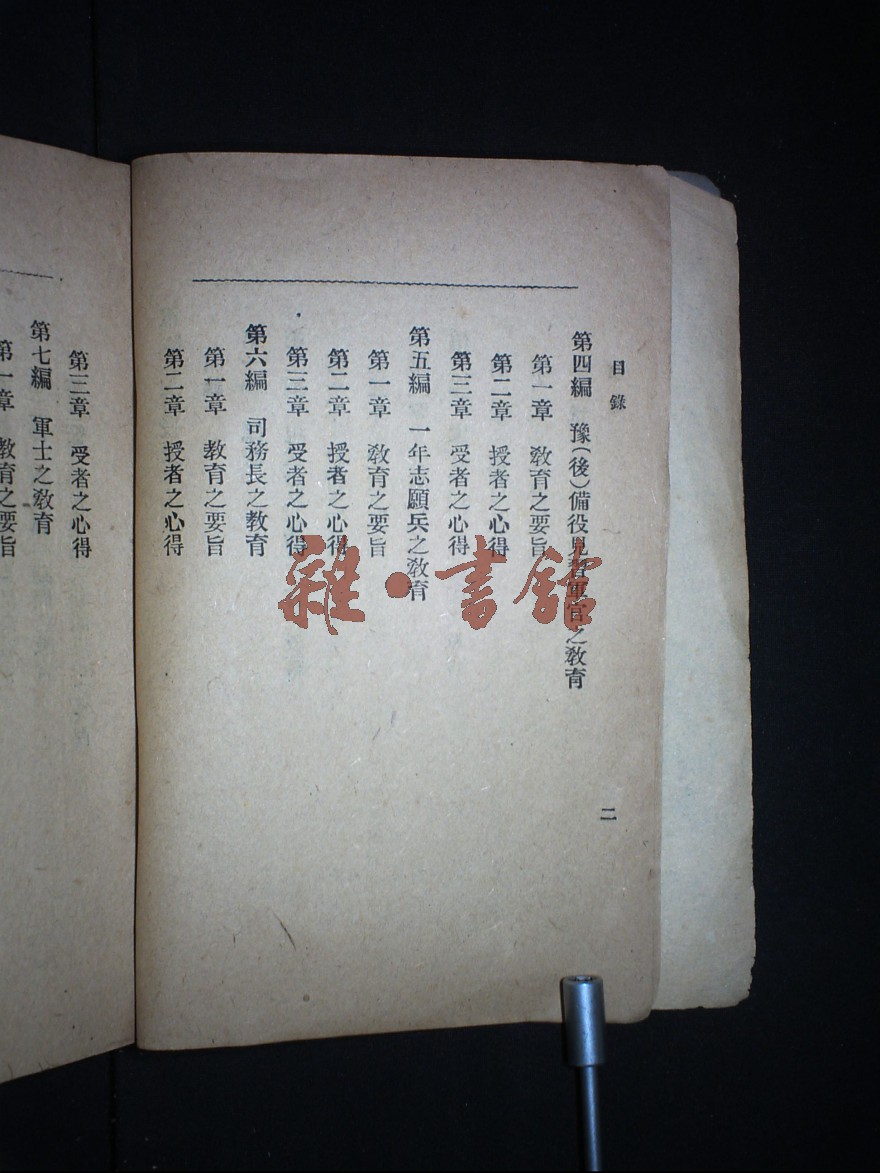 目錄
第四編 豫(後)備役見習軍官之敎育
第一章 敎育之要旨
第二章 授者之心得
第三章 受者之心得
第五編 一年志願兵之敎育
第一章 敎育之要旨
第二章 授者之心得
第三章 受者之心得
第六編 司務長之敎育
第一章 敎育之要旨
第二章 授者之心得
二
第三章 受者之心得
第七編 軍士之敎育
第一章 敎育之要旨
雜·書館